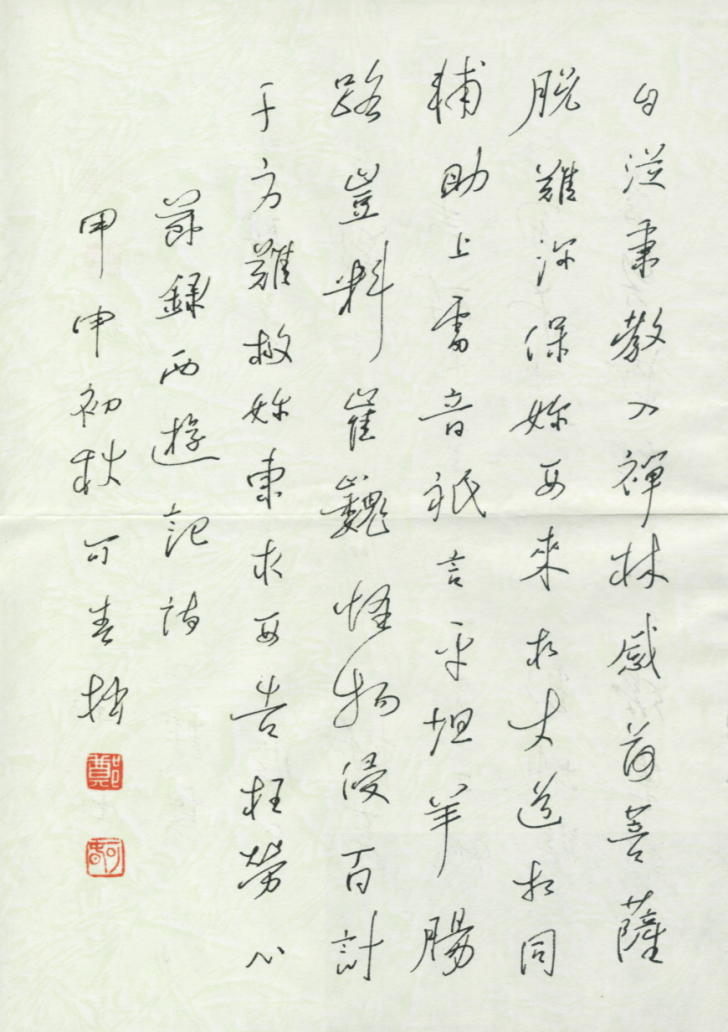 自從秉教入禪林感荷菩薩
脫難深保妳西來求大道相同
輔助上雷音祇言平坦羊腸
路豈料崔巍怪物侵百計
千方難救妳東求西告枉勞心
節錄西遊記詩
甲申初秋可春抄
鄭